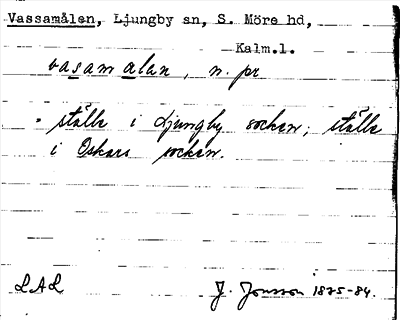 Vassamålen, Ljungby sn, S. Möre hd,
Kalm.l.
vasamalan, n. pr
ställe i Ljungby socken; ställe
i Oskars socken.
LAL J. Jonsson 1875-84.